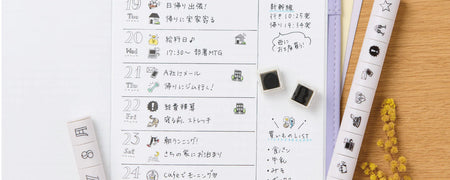 19
Tue
日帰り出張!
帰りに実家寄る
20
Wed
給料日♪
17:30~ 部署MTG
21
Thu
A社にメール
帰りにジム行く!
22
Fri
経費精算
寝る前、ストレッチ
23
Sat
朝ランニング!
さちの家にお泊まり
24
Cafeでモーニング
新幹線
行き10:25発
帰り19:34発
買いものLIST
・食パン
・牛乳
・みそ